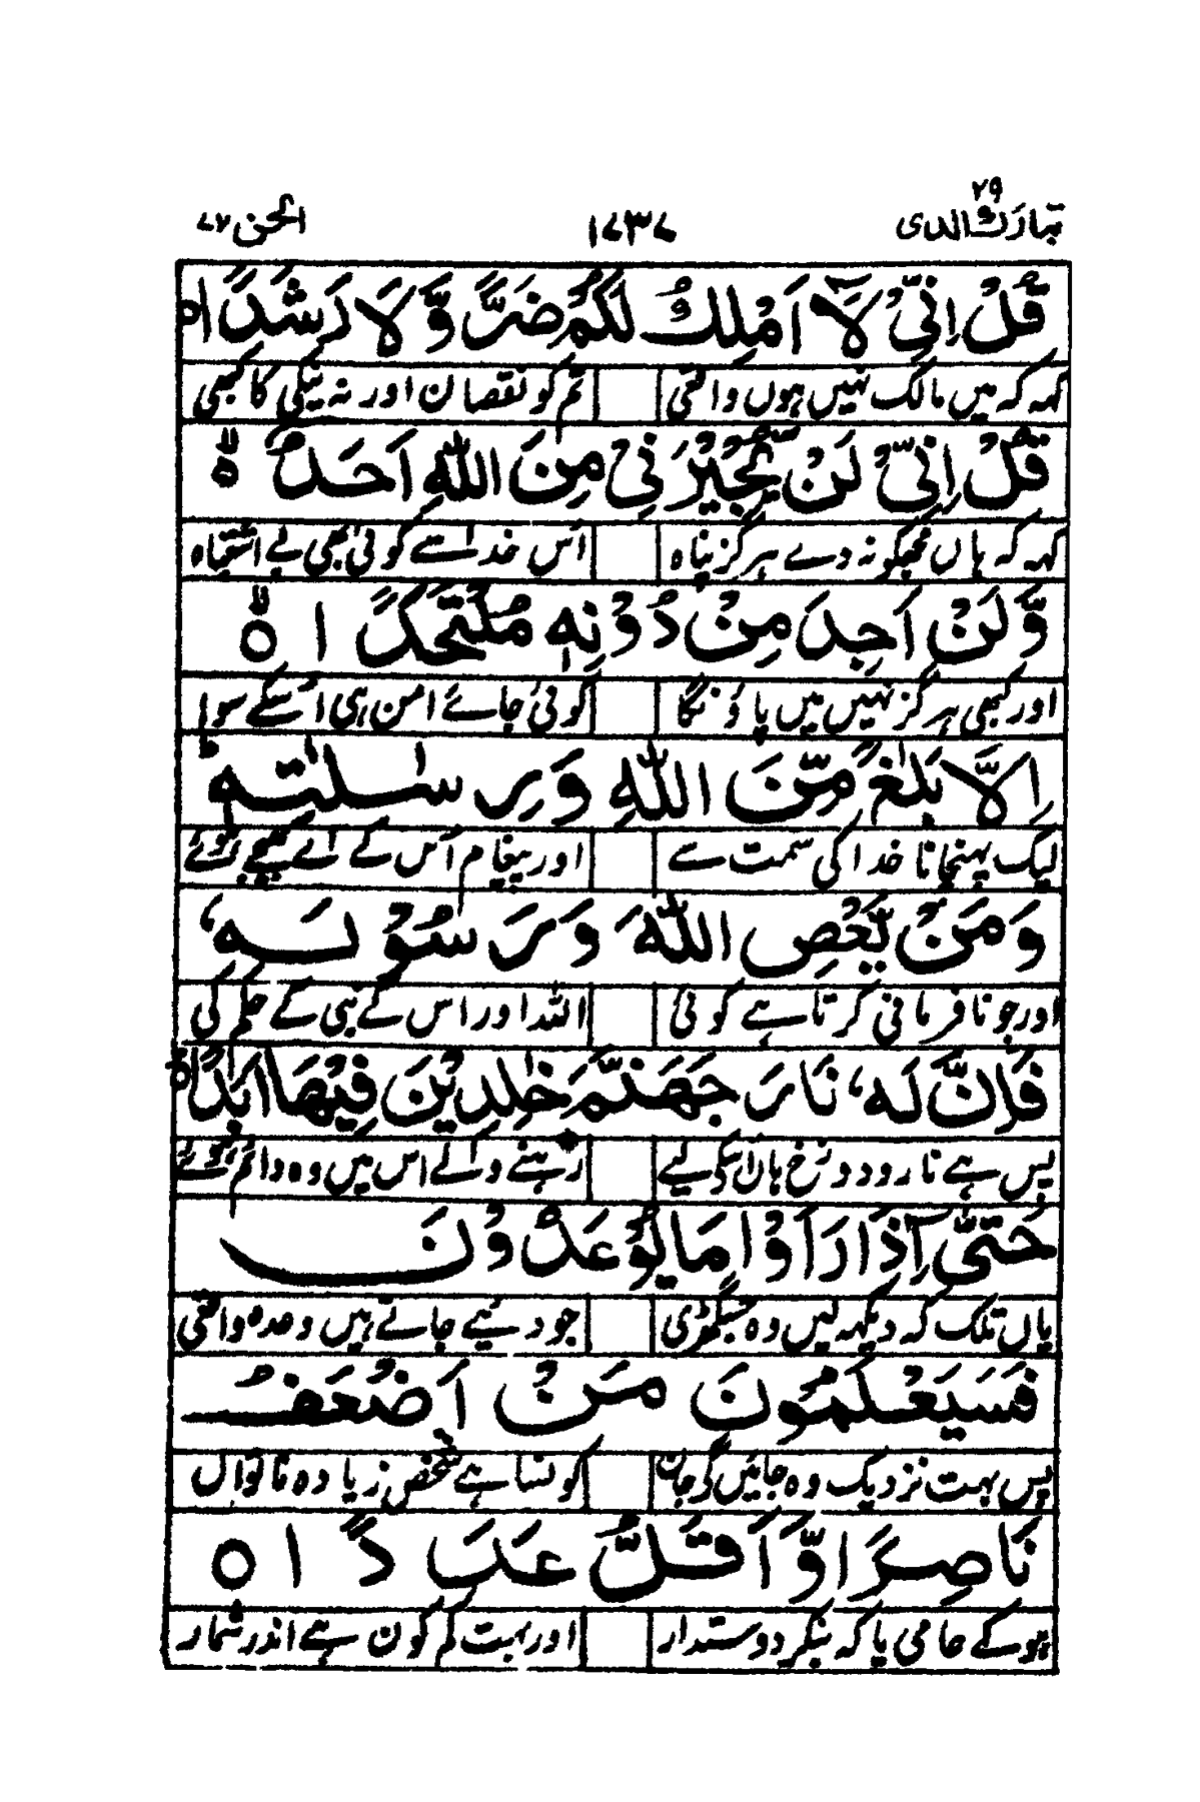 تبارك الذی ۲۹ ۱۷۳۷ الجن ۷۲
قُلْ اِنِّیْ لَاۤ اَمْلِكُ لَكُمْ ضَرًّا وَّ لَا رَشَدًا ۝
کہہ کہ میں مالک نہیں ہوں واقعی تم کو نقصان اور نہ نیکی کا کبھی
قُلْ اِنِّیْ لَنْ یُّجِیْرَ نِیْ مِنَ اللّٰهِ اَحَدٌ ۝
کہہ کہ ہاں مجھکو نہ دے ہرگز پناہ اس خدا سے کوئی بھی بے اشتباہ
وَّ لَنْ اَجِدَ مِنْ دُوْنِهٖ مُلْتَحَدًا ۝
اور کبھی ہرگز نہیں میں پاؤنگا کوئی جائے امن ہی اسکے سوا
اِلَّا بَلٰغًا مِّنَ اللّٰهِ وَ رِسٰلٰتِهٖ
لیک پہنچانا خدا کی سمت سے اور پیغام اس کے اے بھیجے ہوئے
وَ مَنْ یَّعْصِ اللّٰهَ وَ رَسُوْلَهٗ
اور جو نافرمانی کرتا ہے کوئی اللہ اور اس کے نبی کے حکم کی
فَاِنَّ لَهٗ نَارَ جَهَنَّمَ خٰلِدِیْنَ فِیْهَاۤ اَبَدًا ۝
پس ہے نار و دوزخ ہاں اسکے لیے رہنے والے اس میں وہ دائم ہوئے
حَتّٰۤی اِذَا رَاَوْا مَا یُوْعَدُوْنَ
یاں تلک کہ دیکھ لیں وہ جسگھڑی جو دئیے جاتے ہیں وعدہ واقعی
فَسَیَعْلَمُوْنَ مَنْ اَضْعَفُ
پس بہت نزدیک وہ جائیں گے جان کونسا ہے شخص زیادہ ناتواں
نَاصِرًا وَّ اَقَلُّ عَدَدًا ۝
ہوکے حامی یا کہ بنکر دوستدار اور بہت کم کون ہے اندر شمار